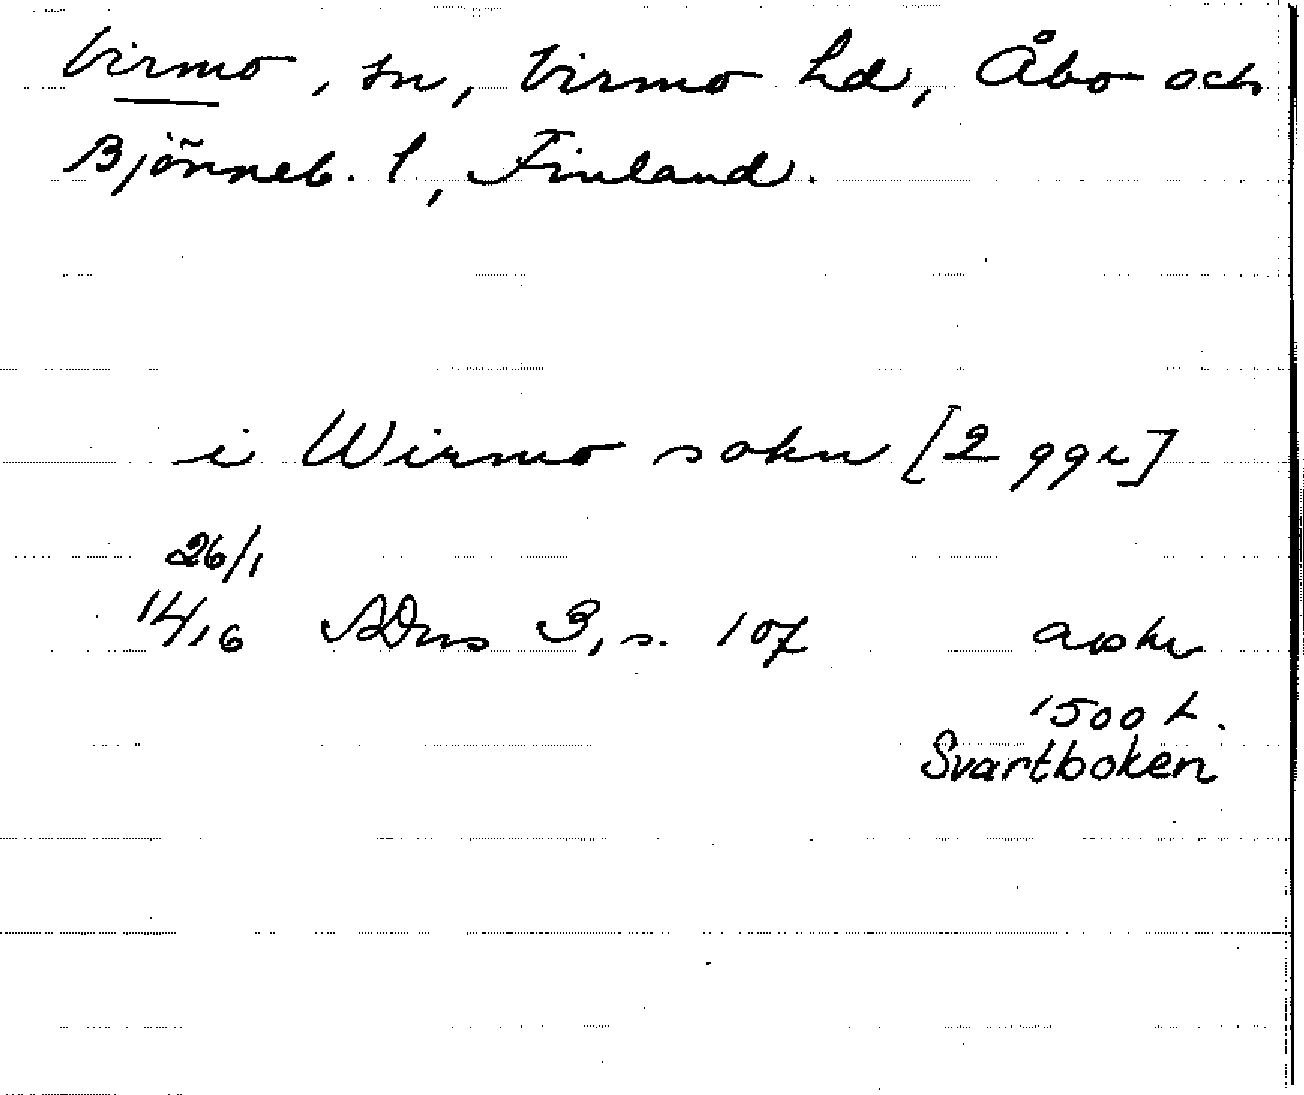 Virmo, sn, Virmo hd, Åbo och
Björneb. l, Finland.
i Wirmo sokn [2 ggr]
26/1
14/16 SDns 3, s. 107 avskr
1500 t.
Svartboken